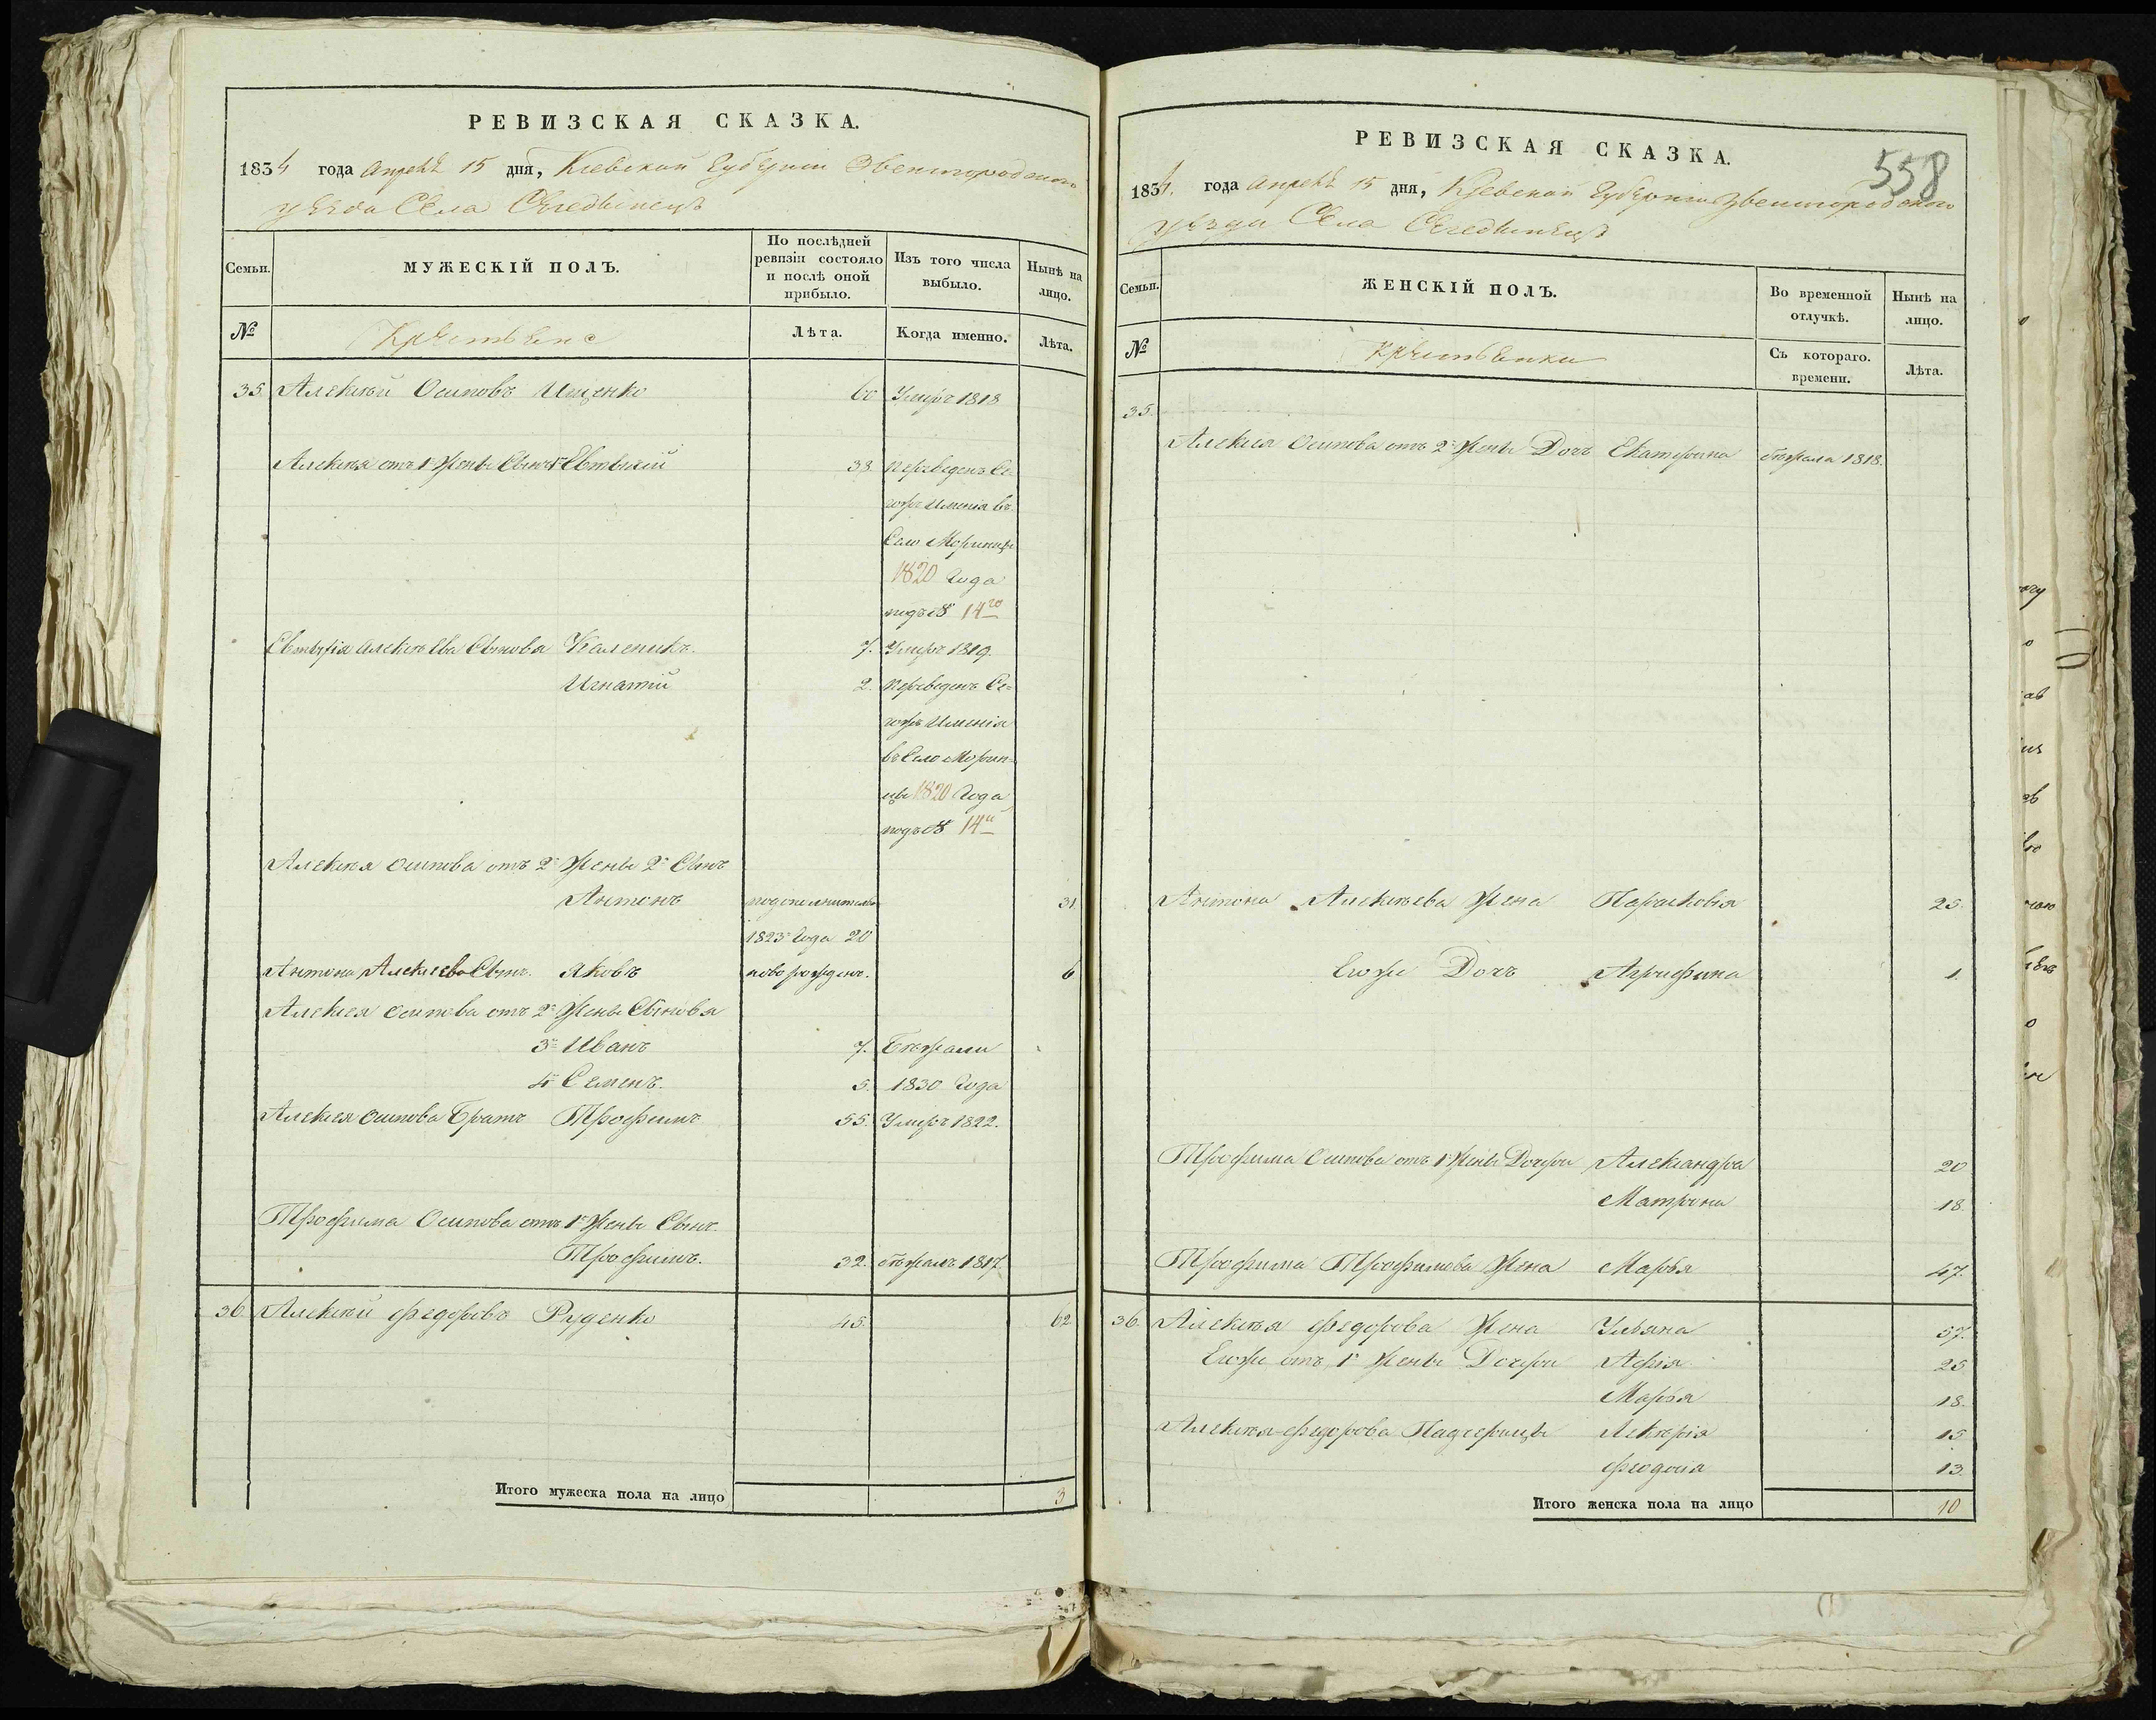 РЕВИЗСКАЯ СКАЗКА.
1834 года Апреля 15 дня, Кіевской Губерніи Звенигородского
уезда Села
Семьи.
МУЖЕСКІЙ ПОЛЪ.
По послѣдней ревизіи состояло и послѣ оной прибыло.
Изъ того числа выбыло.
Нынѣ на лицо.
№
Крестьяне
Лѣта.
Когда именно.
Лѣта.
35. Алексѣй Осиповъ Ищенко 60 Умеръ 1818
Алексѣя отъ 1й Жены Сынъ 1й Евтихій 38. переведенъ Се-
гожъ Именія въ
Село Моринцы
1820 Года
подъ № 14го
Евтихія Алексѣева Сыновья Каленикъ. 7. Умеръ 1819.
Игнатій 2. переведенъ Се-
гожъ Именія
въ Село Морин-
цы 1820 Года
подъ № 14й
Алексѣя Осипова отъ 2й Жены 2й Сынъ
Антонъ 31.
1823 Года 20
Антона Алексѣева Сынъ. Яковъ новорожден. 6
Алексѣя Осипова отъ 2й Жены Сыновья
3й Иванъ 7. Бежали
4й Семенъ. 5. 1830 Года
Алексѣя Осипова Братъ Трофимъ 55. Умеръ 1822.
Трофима Осипова отъ 1й Жены Сынъ.
Трофимъ. 32. бежалъ 1817.
36. Алексѣй Федоровъ Руденко 45. 62.
Итого мужеска пола на лицо 3
РЕВИЗСКАЯ СКАЗКА.
558
1834. года Апреля 15 дня, Кіевской Губерніи Звенигородского
уезда Села
Семьи.
ЖЕНСКІЙ ПОЛЪ.
Во временной отлучкѣ.
Нынѣ на лицо.
№
Крестьянки
Съ котораго времени.
Лѣта.
35.
Алексѣя Осипова отъ 2й Жены Дочь Екатерина бежала 1818.
Антона Алексѣева Жена Парасковія 25.
Егоже Дочь Агрифина 1.
Трофима Осипова отъ 1й Жены Дочери Александра 20
Матрона 18.
Трофима Трофимова Жена Марья 47.
36. Алексѣя Федорова Жена Ульяна 57.
Егоже отъ 1й Жены Дочери 25
Марья 18.
Алексѣя Федорова Падчерицы 15
Феодосія 13.
Итого женска пола на лицо 10